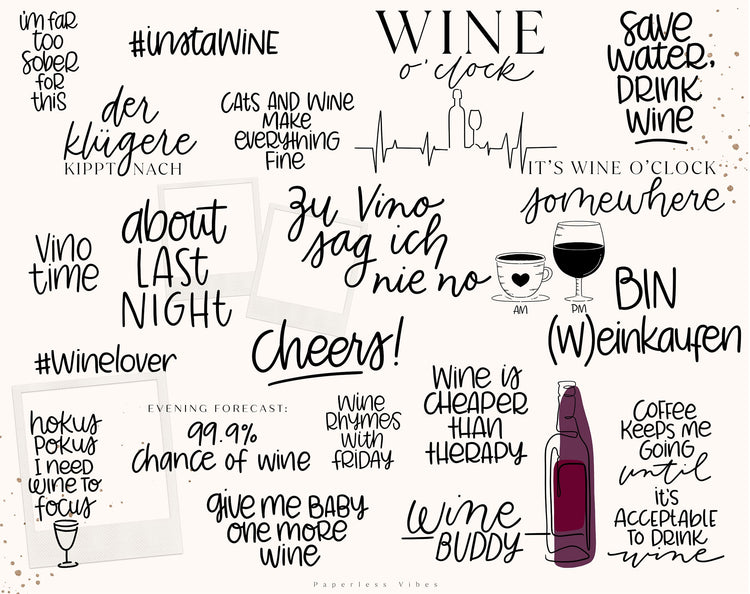 i'm far
too
sober
for
this
#instaWINE
WINE
o'clock
save
water,
DRINK
wine
der
klügere
KIPPT NACH
CATS AND WINE
MAKE
everything
fine
IT'S WINE O'CLOCK
somewhere
Vino
time
about
LAST
NIGHT
zu Vino
sag ich
nie no
AM
PM
BIN
(W)einkaufen
#Winelover
cheers!
hokus
pokus
I need
wine to
focus
EVENING FORECAST:
99.9%
chance of wine
wine
rhymes
with
friday
Wine is
CHEAPER
THAN
THERAPY
COFFEE
KEEPS ME
GOING
until
it's
ACCEPTABLE
TO DRINK
wine
give me BABY
one more
wine
wine
BUDDY
Paperless Vibes